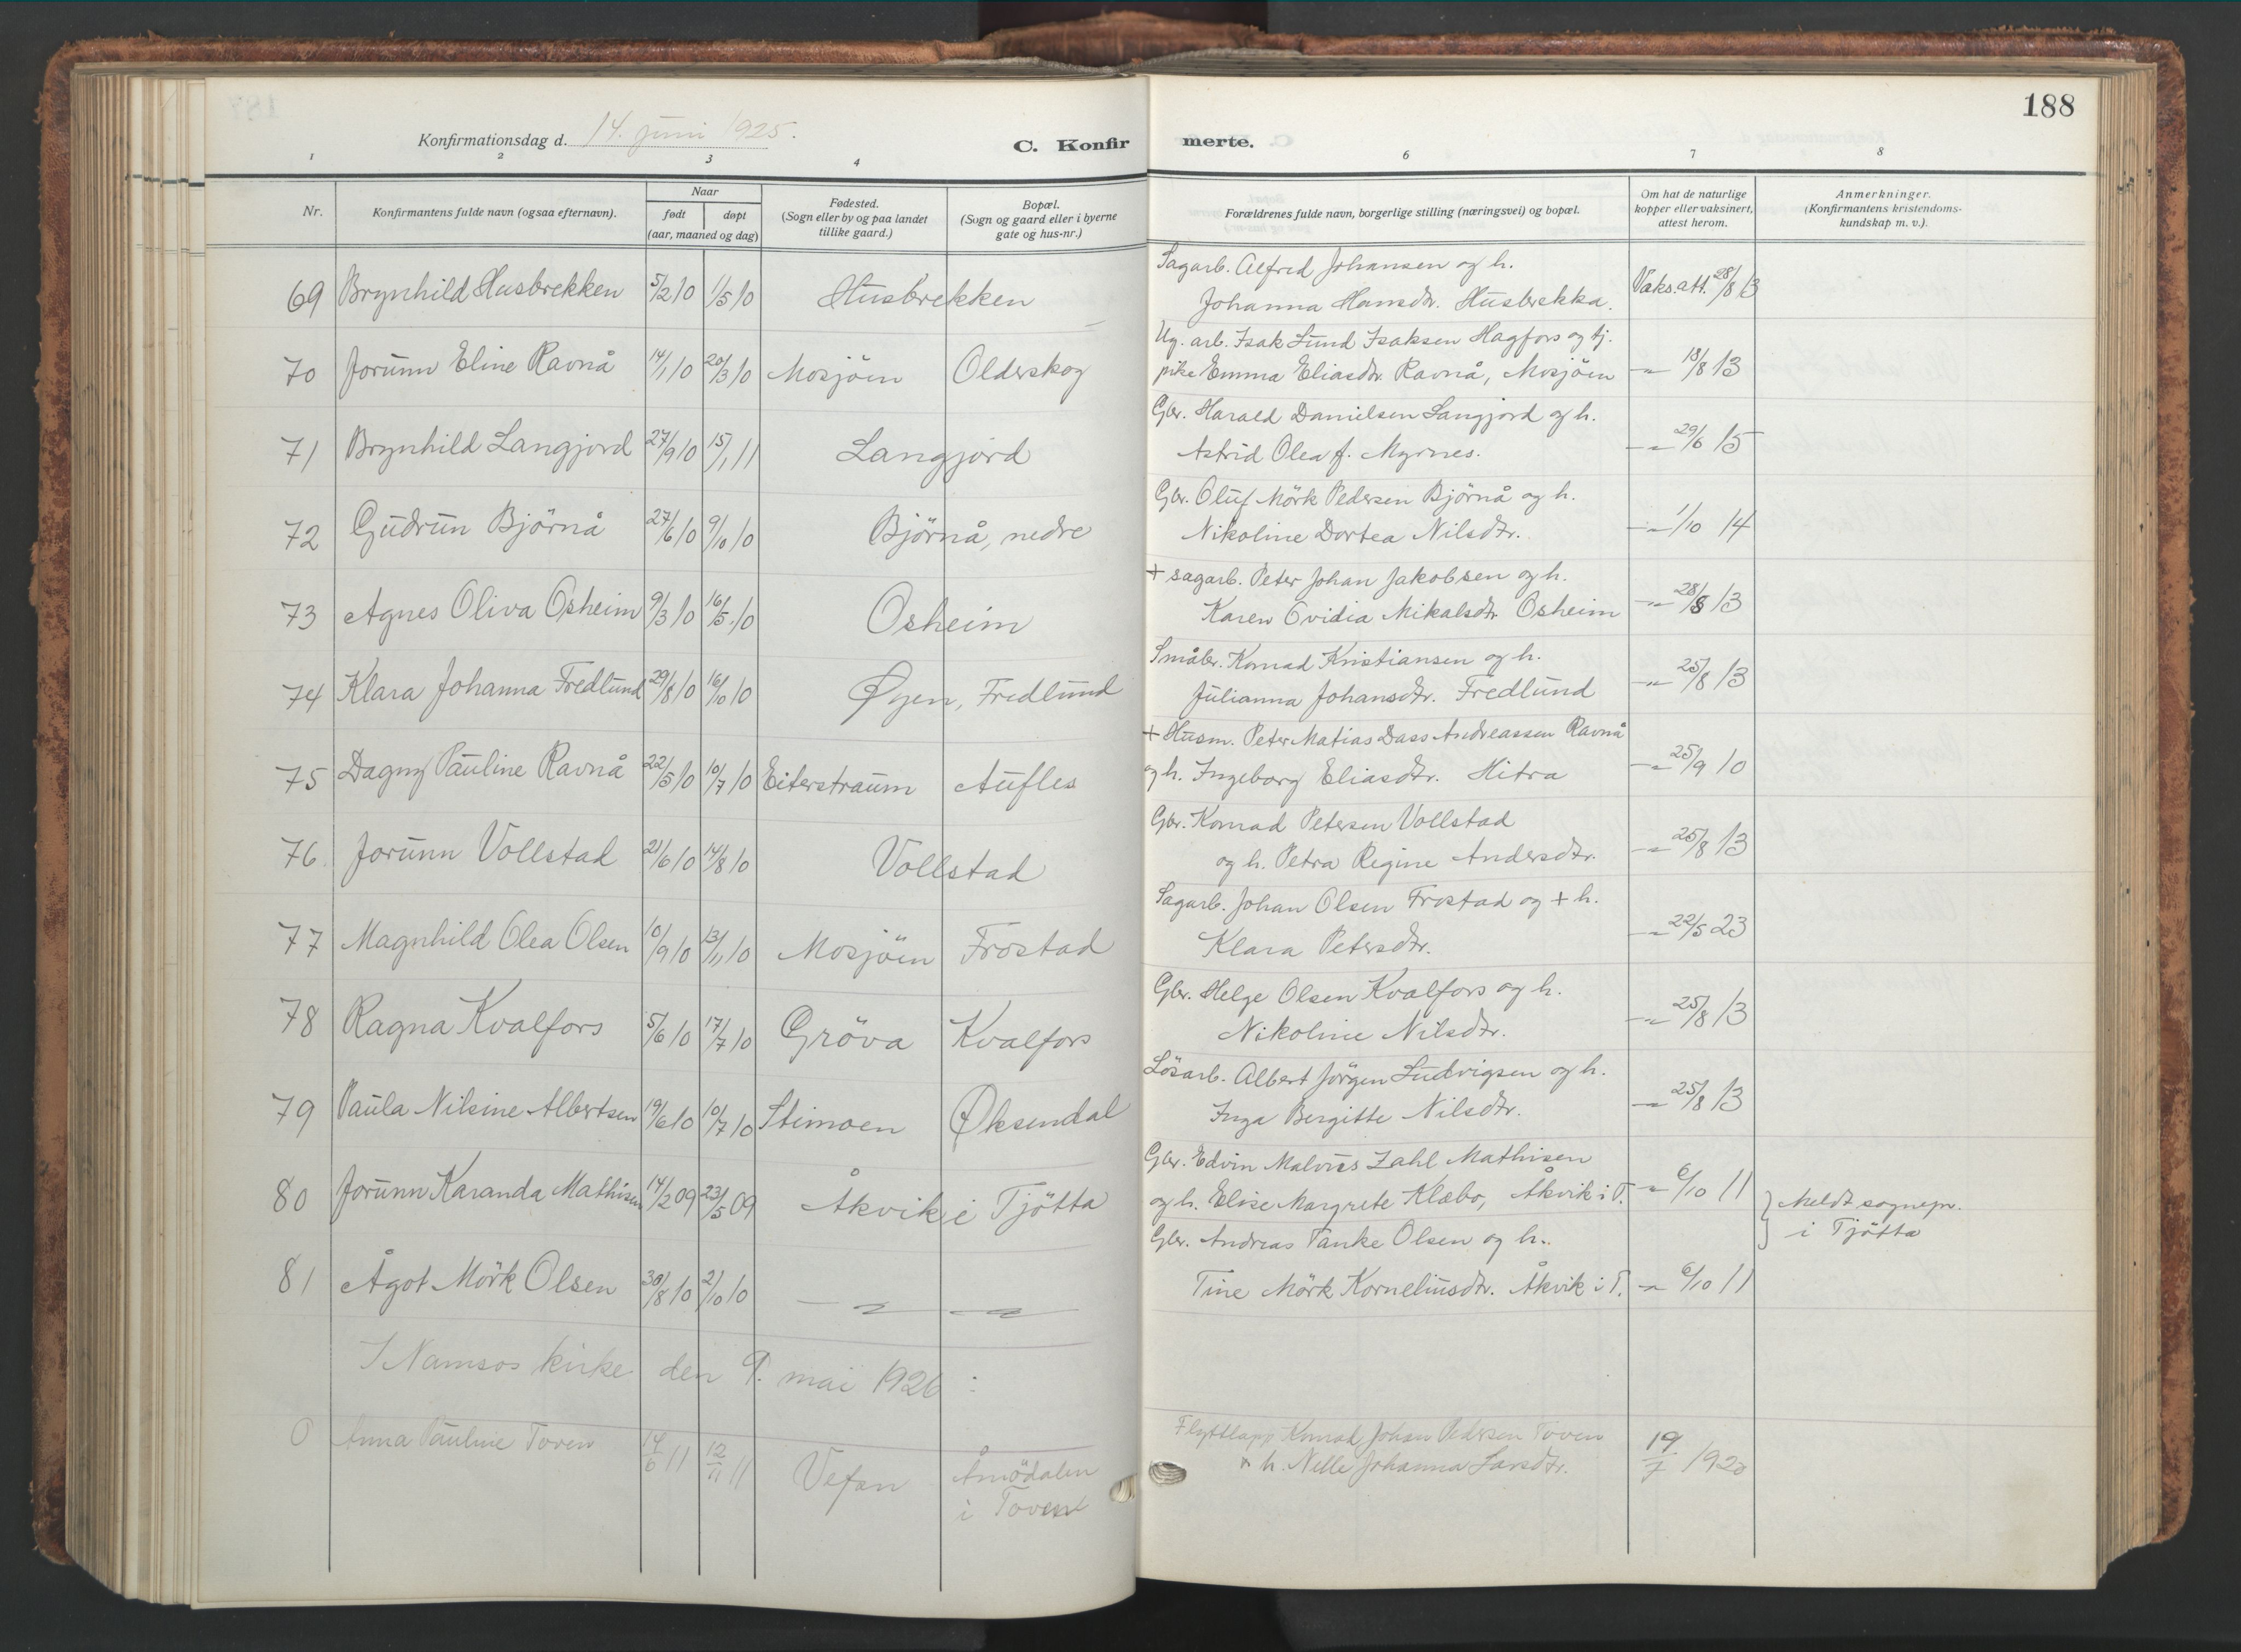 188
Konfirmationsdag d. 14. juni 1925.
C. Konfir merte.
1 2 3 4 6 7 8
Nr.
Konfirmantens fulde navn (ogsaa efternavn).
Naar
født døpt
(aar, maaned og dag)
Fødested.
(Sogn eller by og paa landet
tillike gaard.)
Bopæl.
(Sogn og gaard eller i byerne
gate og hus-nr.)
Forældrenes fulde navn, borgerlige stilling (næringsvei) og bopæl.
Om hat de naturlige
kopper eller vaksinert,
attest herom.
Anmerkninger.
(Konfirmantens kristendoms-
kundskap m. v.).
69 Brynhild Husbrekken 5/2 10 1/5 10 Husbrekken
Sagarb. Alfred Johansen og h.
Johanna Hansdtr. Husbrekka.
Vaks.att. 28/8 13
70 Jorunn Eline Ravnå 14/1 10 20/3 10 Mosjöen Olderskog
Ug. arb. Isak Lund Isaksen Hagfors og tj.
pike Emma Eliasdtr. Ravnå, Mosjöen
-"- 18/8 13
71 Brynhild Langjord 27/9 10 15/1 11 Langjord
Gbr. Harald Danielsen Langjord og h.
Astrid Olea f. Myrnes.
-"- 29/6 15
72 Gudrun Björnå 27/6 10 9/10 10 Björnå, nedre
Gbr. Oluf Mörk Pedersen Björnå og h.
Nikoline Dortea Nilsdtr.
-"- 1/10 14
73 Agnes Oliva Osheim 9/3 10 16/5 10 Osheim
+ sagarb. Peter Johan Jakobsen og h.
Karen Ovidia Mikalsdtr. Osheim
-"- 28/8 13
74 Klara Johanna Fredlund 29/8 10 16/10 10 Øyen, Fredlund
Småbr. Konrad Kristiansen og h.
Julianna Johansdtr. Fredlund
-"- 25/8 13
75 Dagny Pauline Ravnå 22/5 10 10/7 10 Eiterstraum Aufles
+ Husm. Peter Matias Dass Andreassen Ravnå
og h. Ingeborg Eliasdtr. Hitra
-"- 25/9 10
76 Jorunn Vollstad 21/6 10 14/8 10 Vollstad
Gbr. Konrad Petersen Vollstad
og h. Petra Regine Andersdtr.
-"- 25/8 13
77 Magnhild Olea Olsen 10/9 10 13/11 10 Mosjöen Frostad
Sagarb. Johan Olsen Frostad og + h.
Klara Petersdtr.
-"- 22/5 23
78 Ragna Kvalfors 5/6 10 17/7 10 Gröva Kvalfors
Gbr. Helge Olsen Kvalfors og h.
Nikoline Nilsdtr.
-"- 25/8 13
79 Paula Nilsine Albertsen 19/6 10 10/7 10 Stimoen Øksendal
Lösarb. Albert Jörgen Ludvigsen og h.
Inga Bergitte Nilsdtr.
-"- 25/8 13
80 Jorunn Karanda Mathisen 14/2 09 23/5 09 Åkvik i Tjötta
Gbr. Edvin Malvies Zahl Mathisen
og h. Elise Margrete Klæbo, Åkvik i T.
-"- 6/10 11
Meldt sognepr.
i Tjötta
81 Ågot Mörk Olsen 30/8 10 2/10 10 -"- -"-
Gbr. Andreas Tanke Olsen og h.
Tine Mörk Korneliusdtr. Åkvik i T.
-"- 6/10 11
I Namsos kirke den 9. mai 1926 :
0 Anna Pauline Toven 14/6 11 12/11 11 Vefsn Åmödalen
i Toven
Flyttlapp Konrad Johan Pedersen Toven
h. Nelle Johanna Larsdtr.
19/7 1920